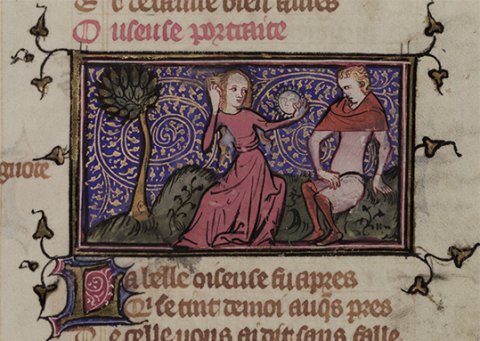 bien
Ouseuse portraite
La belle oiseuse fu apres
Qi se tint de moi auqs pres
De celle vous ai dit sans falle